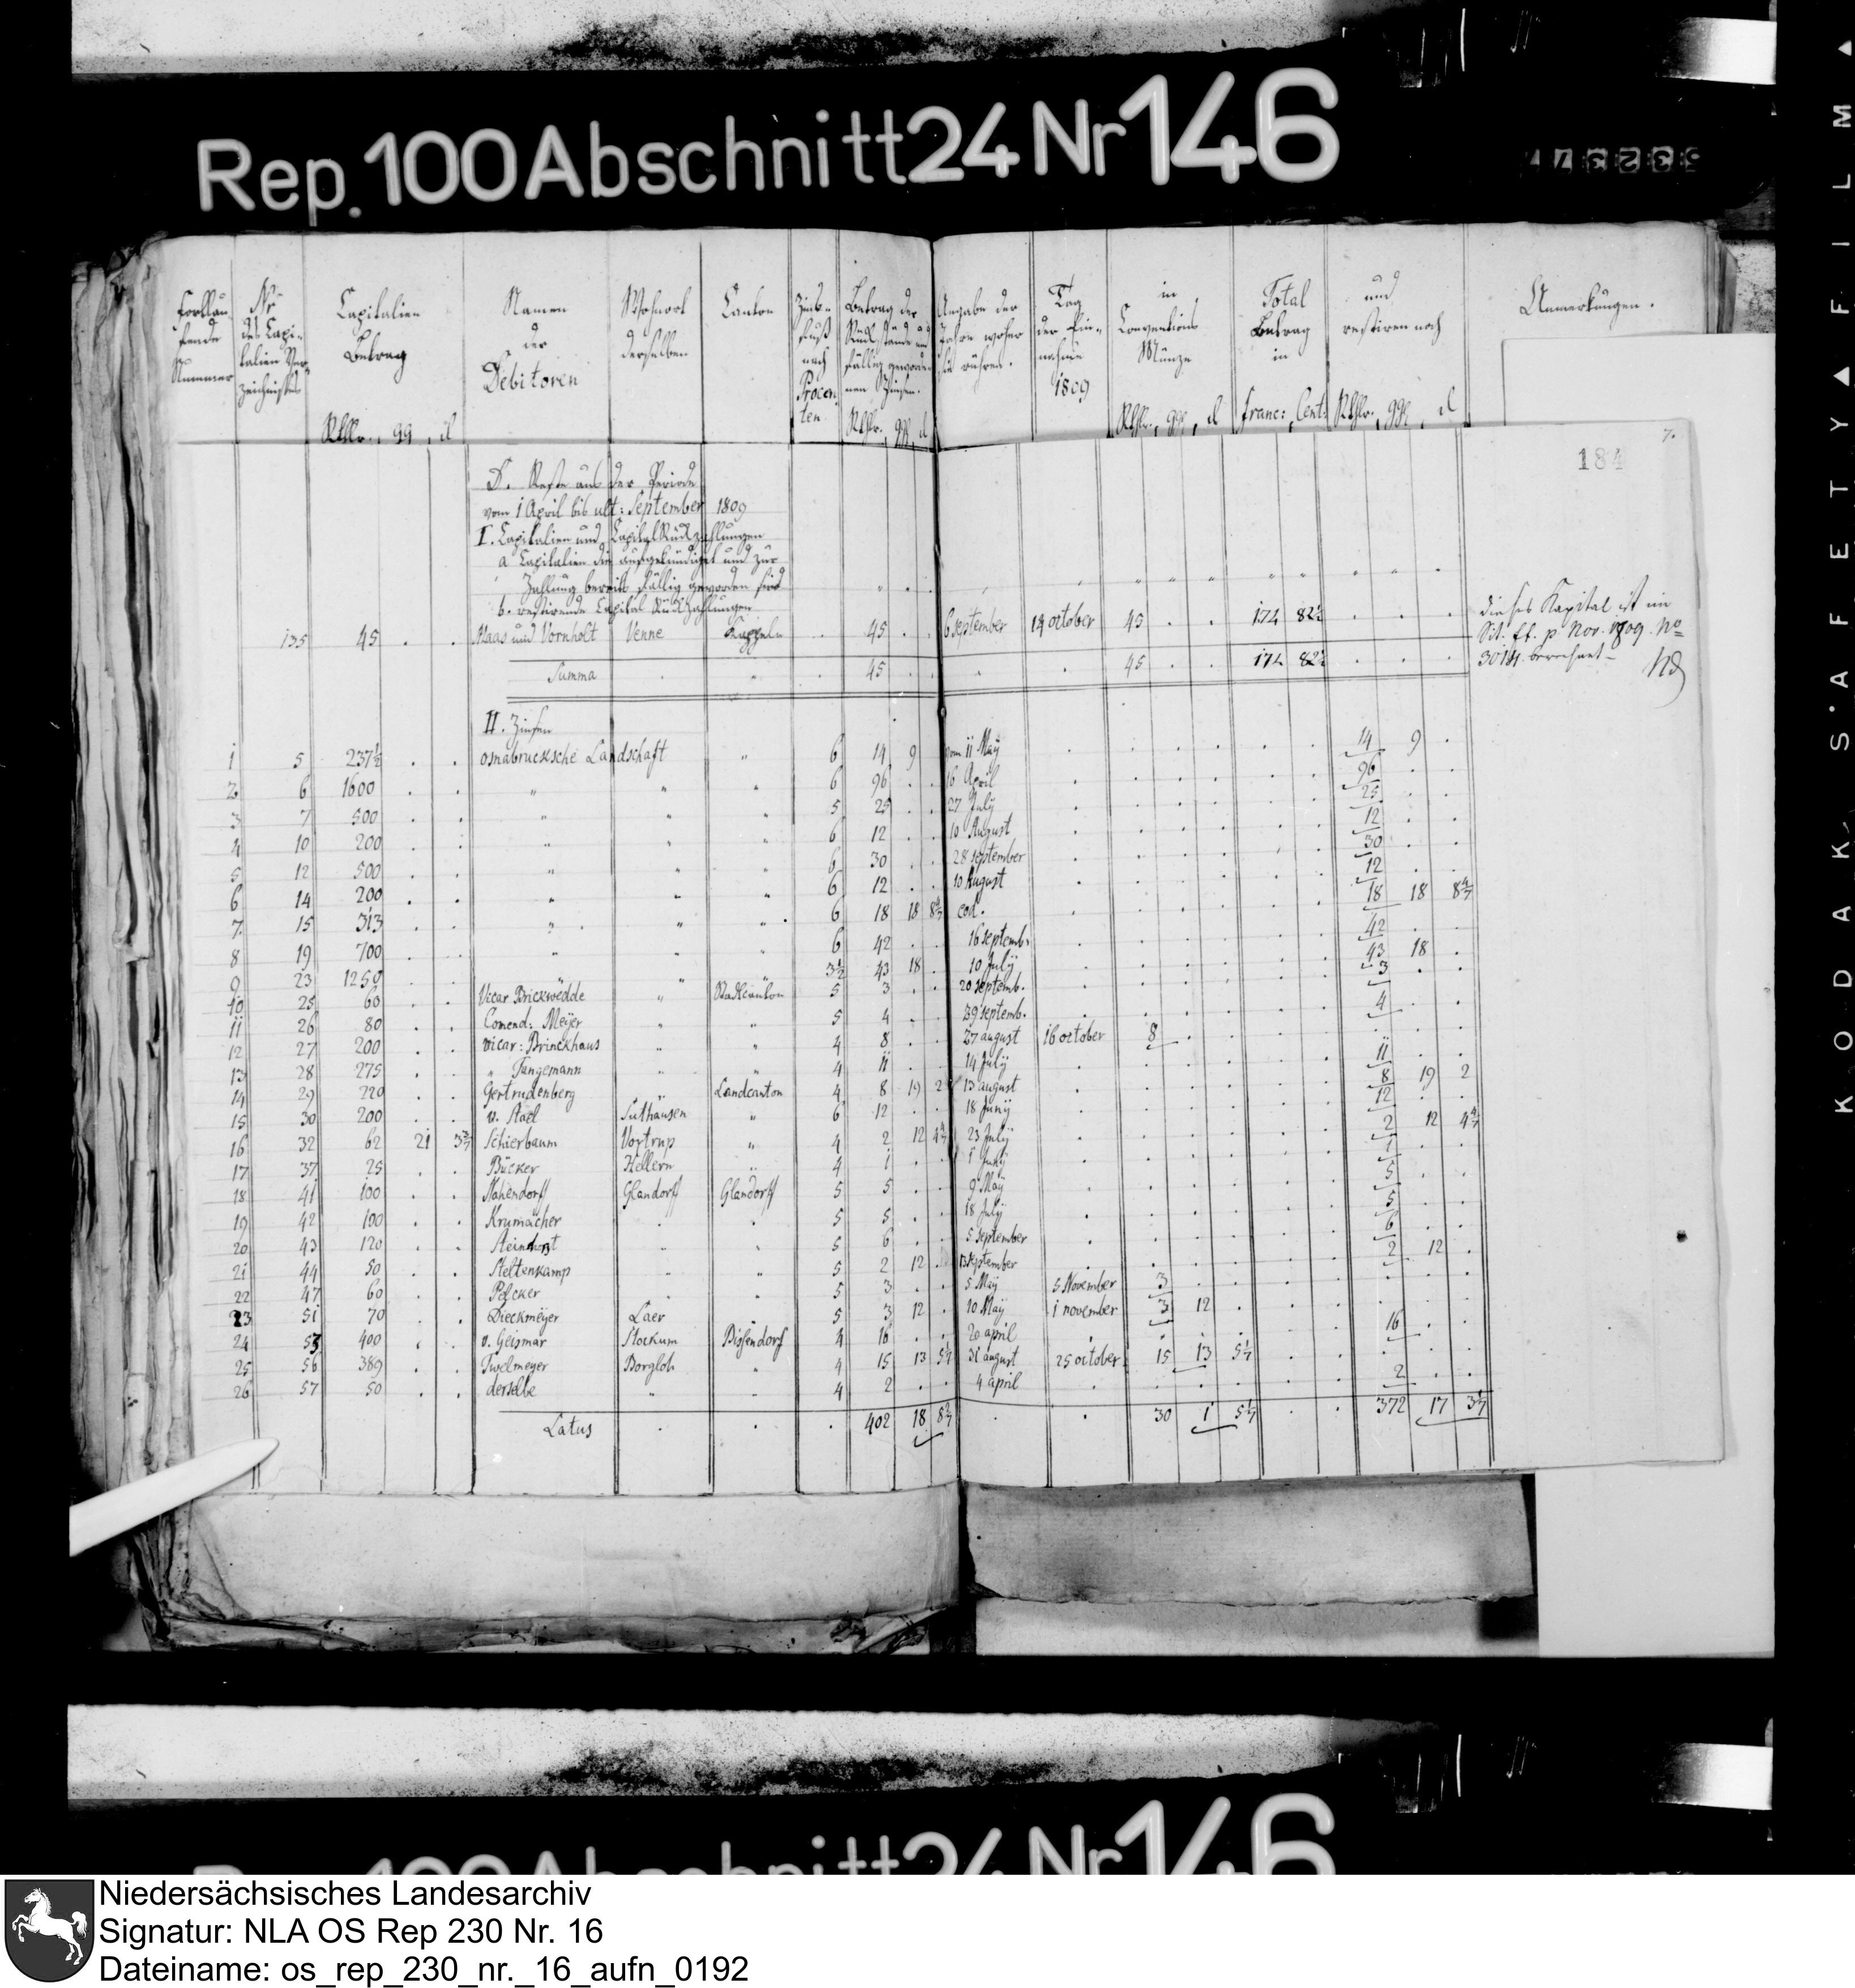 Rep. 100 Abschnitt 24 Nr 146
Fortlau- fende Nummer
Nr des Capi- talien Ver- zeichnißes
Capitalien Betrag Rthlr. gg d
Namen der Debitoren
Wohnort derselben
Canton
Zins- fuß nach Procen- ten
Betrag der Rückstände und fällig geworde- nen Zinsen. Rthlr. ggr d
Angabe der Jahre woher sie rühren.
Tag der Ein- nahme 1809
in Conventions Münze Rthlr. ggr d
Total Betrag in Franc: Cent:
und restiren noch Rthlr. ggr d
Anmerkungen.
7.
184
D. Reste aus der Periode
vom 1 April bis ult: September 1809
I. Capitalien und Capital Rückzahlungen
a Capitalien die aufgekündiget und zur
Zahlung bereits fällig geworden sind
b. restirende Capital Rückzahlungen
135 45 . . Maas und Vornholt Venne Kappeln . . 45 . . 6 September 19 october 45 . . 174 82½ . . . dieses Kapital ist im
Summa . . . 45 . . . . 45 . . 174 82½ . . .
II. Zinsen
1 5 237½ . . osnabrucksche Landschaft " 6 14 9 vom 11 Maÿ 14 9 .
2 6 1600 . . " " " 6 96 . . 16 April 96 . .
3 7 500 . . " " " 5 25 . . 27 Julÿ 25 . .
4 10 200 . . " " " 6 12 . . 10 August 12 . .
5 12 500 . . " " " 6 30 . . 28 september 30 . .
6 14 200 . . " " " 6 12 . . 10 August 12 . .
7 15 313 . . " " " 6 18 18 8 4/7 eod. 18 18 8 4/7
8 19 700 . . " " " 6 42 . . 16 septemb. 42 . .
9 23 1250 . . " " 3½ 43 18 . 10 Julÿ 43 18 .
10 25 60 . . Vicar Brickwedde " Stadtcanton 5 3 . . 20 septemb. 3 . .
11 26 80 . . Comend: Meÿer " " 5 4 . . 29 septemb. 4 . .
12 27 200 . . vicar: Brinckhaus " " 4 8 . . 27 august 16 october 8 .
13 28 275 . . " Tangemann " " 4 11 . . 14 Julÿ 11 . .
14 29 220 . . Gertrudenberg " Landcanton 4 8 19 2 13 august 8 19 2
15 30 200 . . v. Stael Suthausen " 6 12 . . 18 Junÿ 12 . .
16 32 62 21 3 3/7 Schierbaum Voxtrup " 4 2 12 4 4/7 23 Julÿ 2 12 4 4/7
17 37 25 . . Bücker Hellern " 4 1 . . 1 Junÿ 1 . .
18 41 100 . . Nahendorff Glandorff Glandorff 5 5 . . 9 Maÿ 5 . .
19 42 100 . . Krumacher . . 5 5 . . 18 Julÿ 5 . .
20 43 120 . . Steinhorst " " 5 6 . . 5 september 6 . .
21 44 50 . . Steltenkamp " " 5 2 12 . 13 September 2 12 .
22 47 60 . . Pelcker " " 5 3 . . 5 Maÿ 5 November 3 .
23 51 70 . . Dieckmeÿer Laer 5 3 12 . 10 Maÿ 1 november 3 12 .
24 53 400 . . v. Geismar Stockum Bissendorf 4 16 . . 20 april 16 . .
25 56 389 . . Twelmeyer Borgloh " 4 15 13 5 1/7 31 august 25 october 15 13 5 1/7
26 57 50 . . derselbe " " 4 2 . . 4 april 2 . .
Latus . . . 402 18 8 2/7 . . 30 1 5 1/7 . . 372 17 3 1/7
KODAK · SAFETY FILM
Rep. 100 Abschnitt 24 Nr 146
Niedersächsisches Landesarchiv
Signatur: NLA OS Rep 230 Nr. 16
Dateiname: os_rep_230_nr._16_aufn_0192